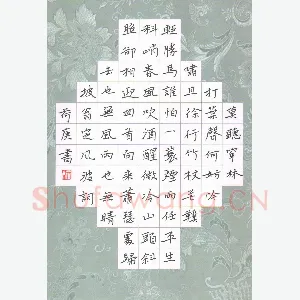 莫聽穿林
打葉聲何妨吟
嘯且徐行竹杖芒鞋
輕勝馬誰怕一蓑煙雨任平生
料峭春風吹酒醒微冷山頭斜
照卻相迎回首向來蕭瑟處歸
去也無風雨也無晴
坡翁定風波詞
荷庚書
Shufawang.CN